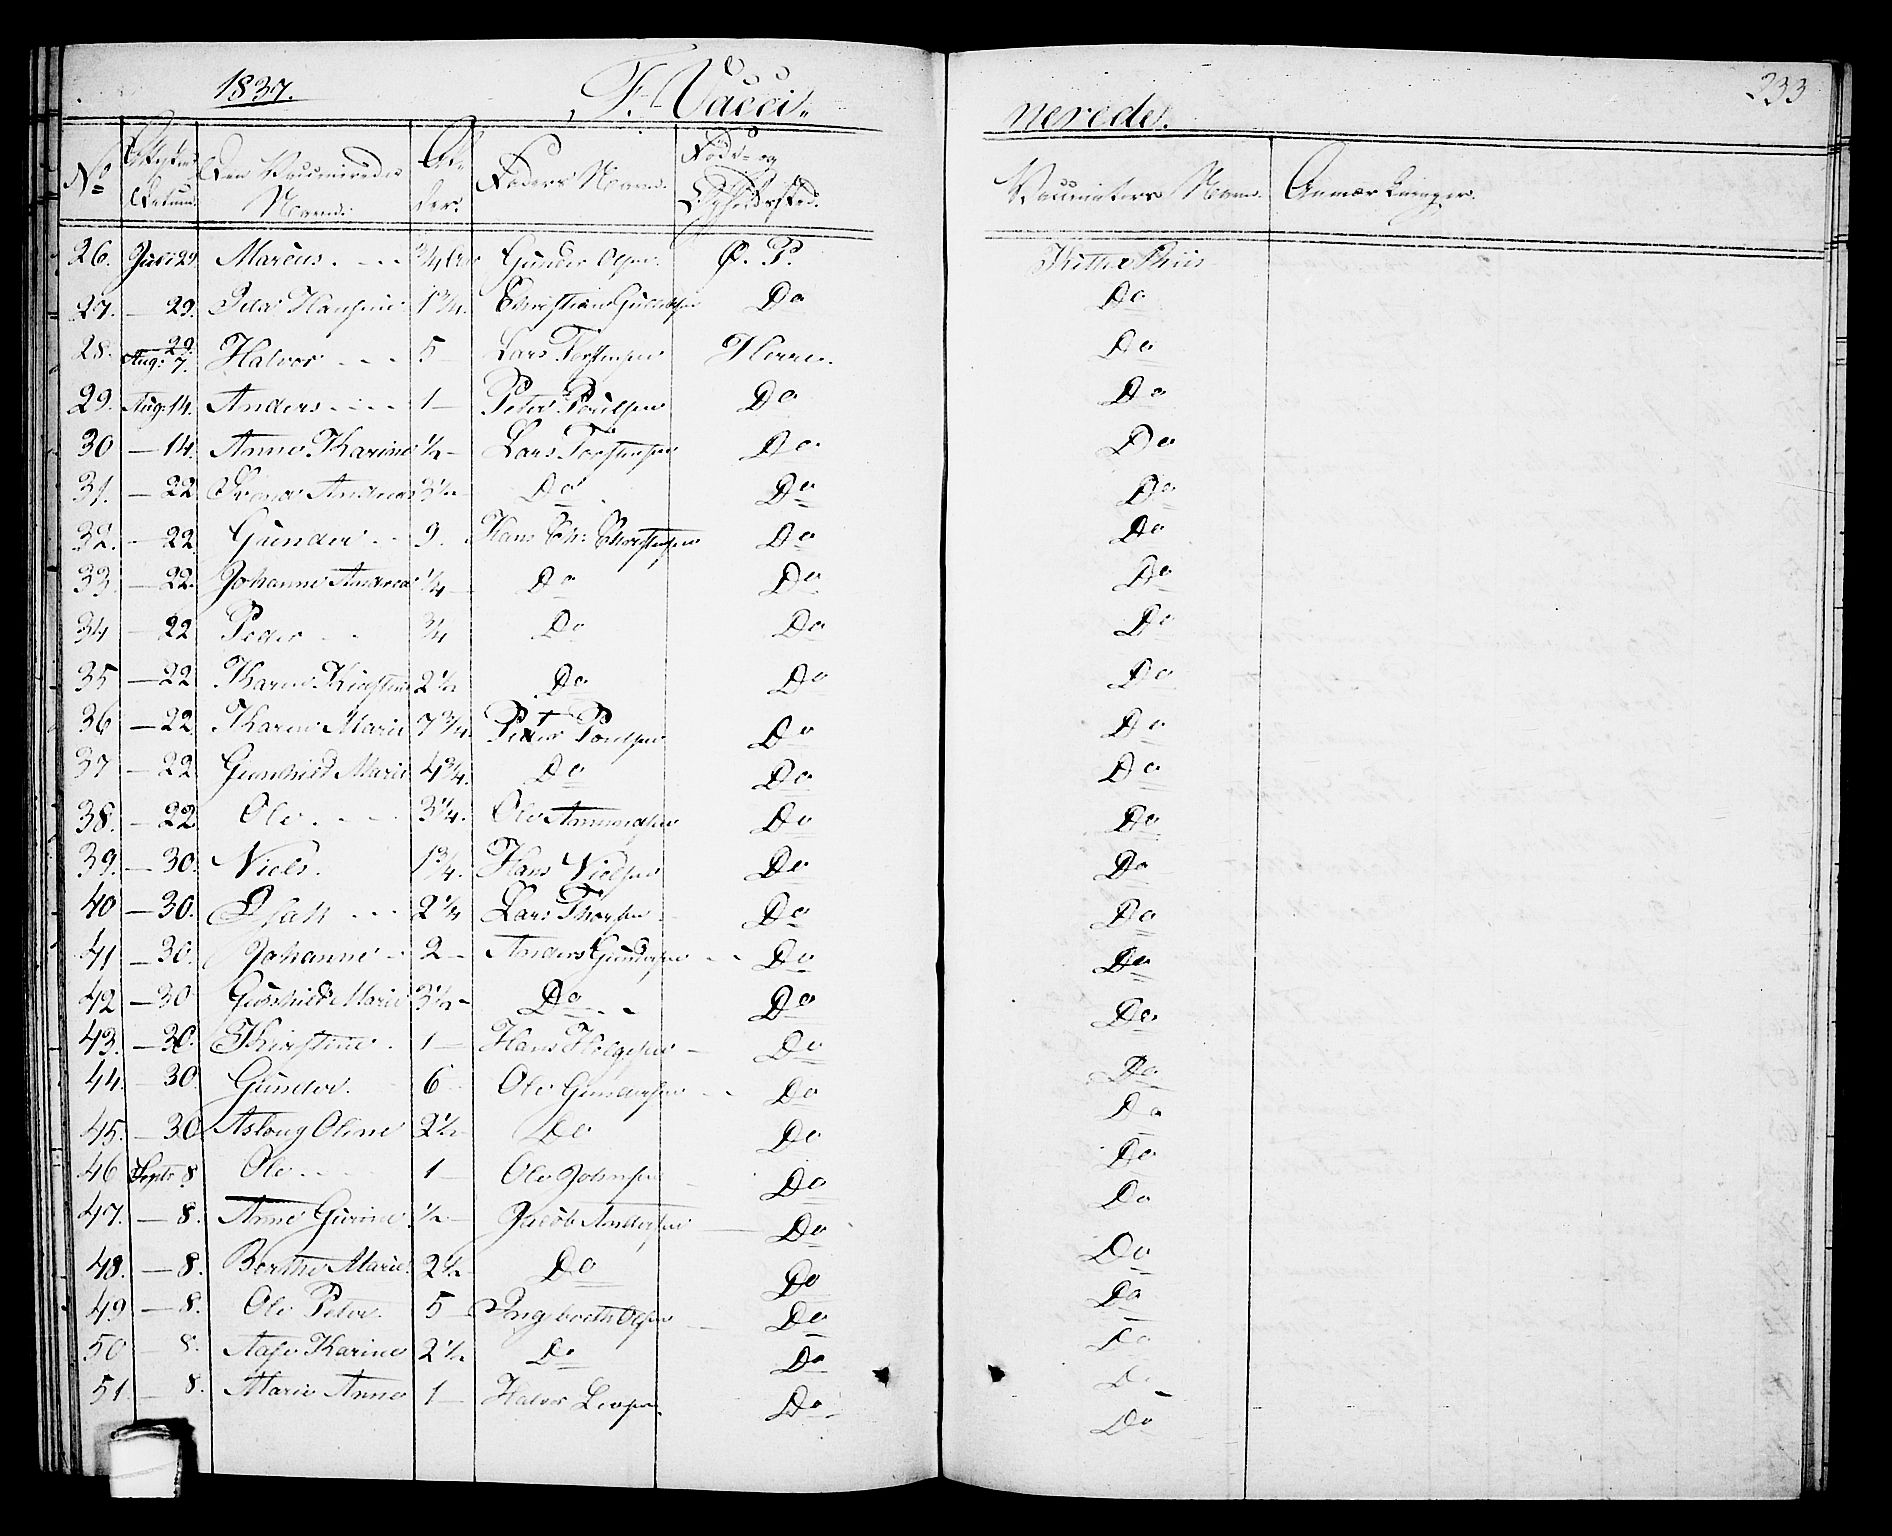 1837.
F. Vacci-
nerede.
233
No Attestens Datum. Den Vaccineredes Navn. Alder. Faders Navn. Føde- og Opholdssted. Vaccinators Navn. Anmærkninger.
26. Juli 29. Marcus - - - 3/4 Gunder Olsen. Ø. P. Kittel Riis
27. — 29. Hansine 1 3/4. Christian Do Do
28. 29. Aug: 7. Halvor - - - 5 Lars Torstensen Herre. Do
29. Aug: 14. Anders - - - 1 — Peter Poulsen Do Do
30 — 14. Anne Karine 1/2 — Lars Torstensen Do Do
31. — 22 Andreas 3 1/2 — Do Do Do
32. — 22 Gunder - - 9. Hans Chr: Christensen Do Do
33. — 22. Johanne Andrea 1/4 — Do Do Do
34 — 22 Peder - - 3/4 Do Do Do
35 — 22 Karen Kirstine 2 1/2 Do Do Do
36 — 22 Karen Marie 7 3/4. † Peter Poulsen Do Do
37 — 22 Gunhild Marie 4 3/4. Do Do Do
38. — 22 Ole - - - 3 1/4. Ole Amundsen Do Do
39. — 30. Niels. 1 3/4. Hans Nielsen Do Do
40 — 30. Isak - - - 2 1/4 Lars Thorsen Do Do
41 — 30. Johanne - 2 — Anders Gundersen - - Do Do
42 — 30 Gunhild Marie 3 1/2 — Do - - Do Do
43. — 30. Kirstine - 1 — Hans Helgesen — Do Do
44. — 30. Gunder. 6 Ole Gundersen - - Do Do
45. — 30 Aslaug Oline 2 1/2 Do Do Do
46 Septr 8 Ole - - - 1 — Ole Johnsen — Do Do
47. — 8. Anne Gurine 1/2 — Jacob Andersen — Do Do
48. — 8. Berthe Marie 2 1/2 Do Do Do
49 — 8. Ole Peter. 5 — Ingebreth Olsen — Do Do
50 — 8. Aase Karine 2 1/2 Do Do Do
51. — 8. Marie Anne 1 — Halvor Do Do
Do